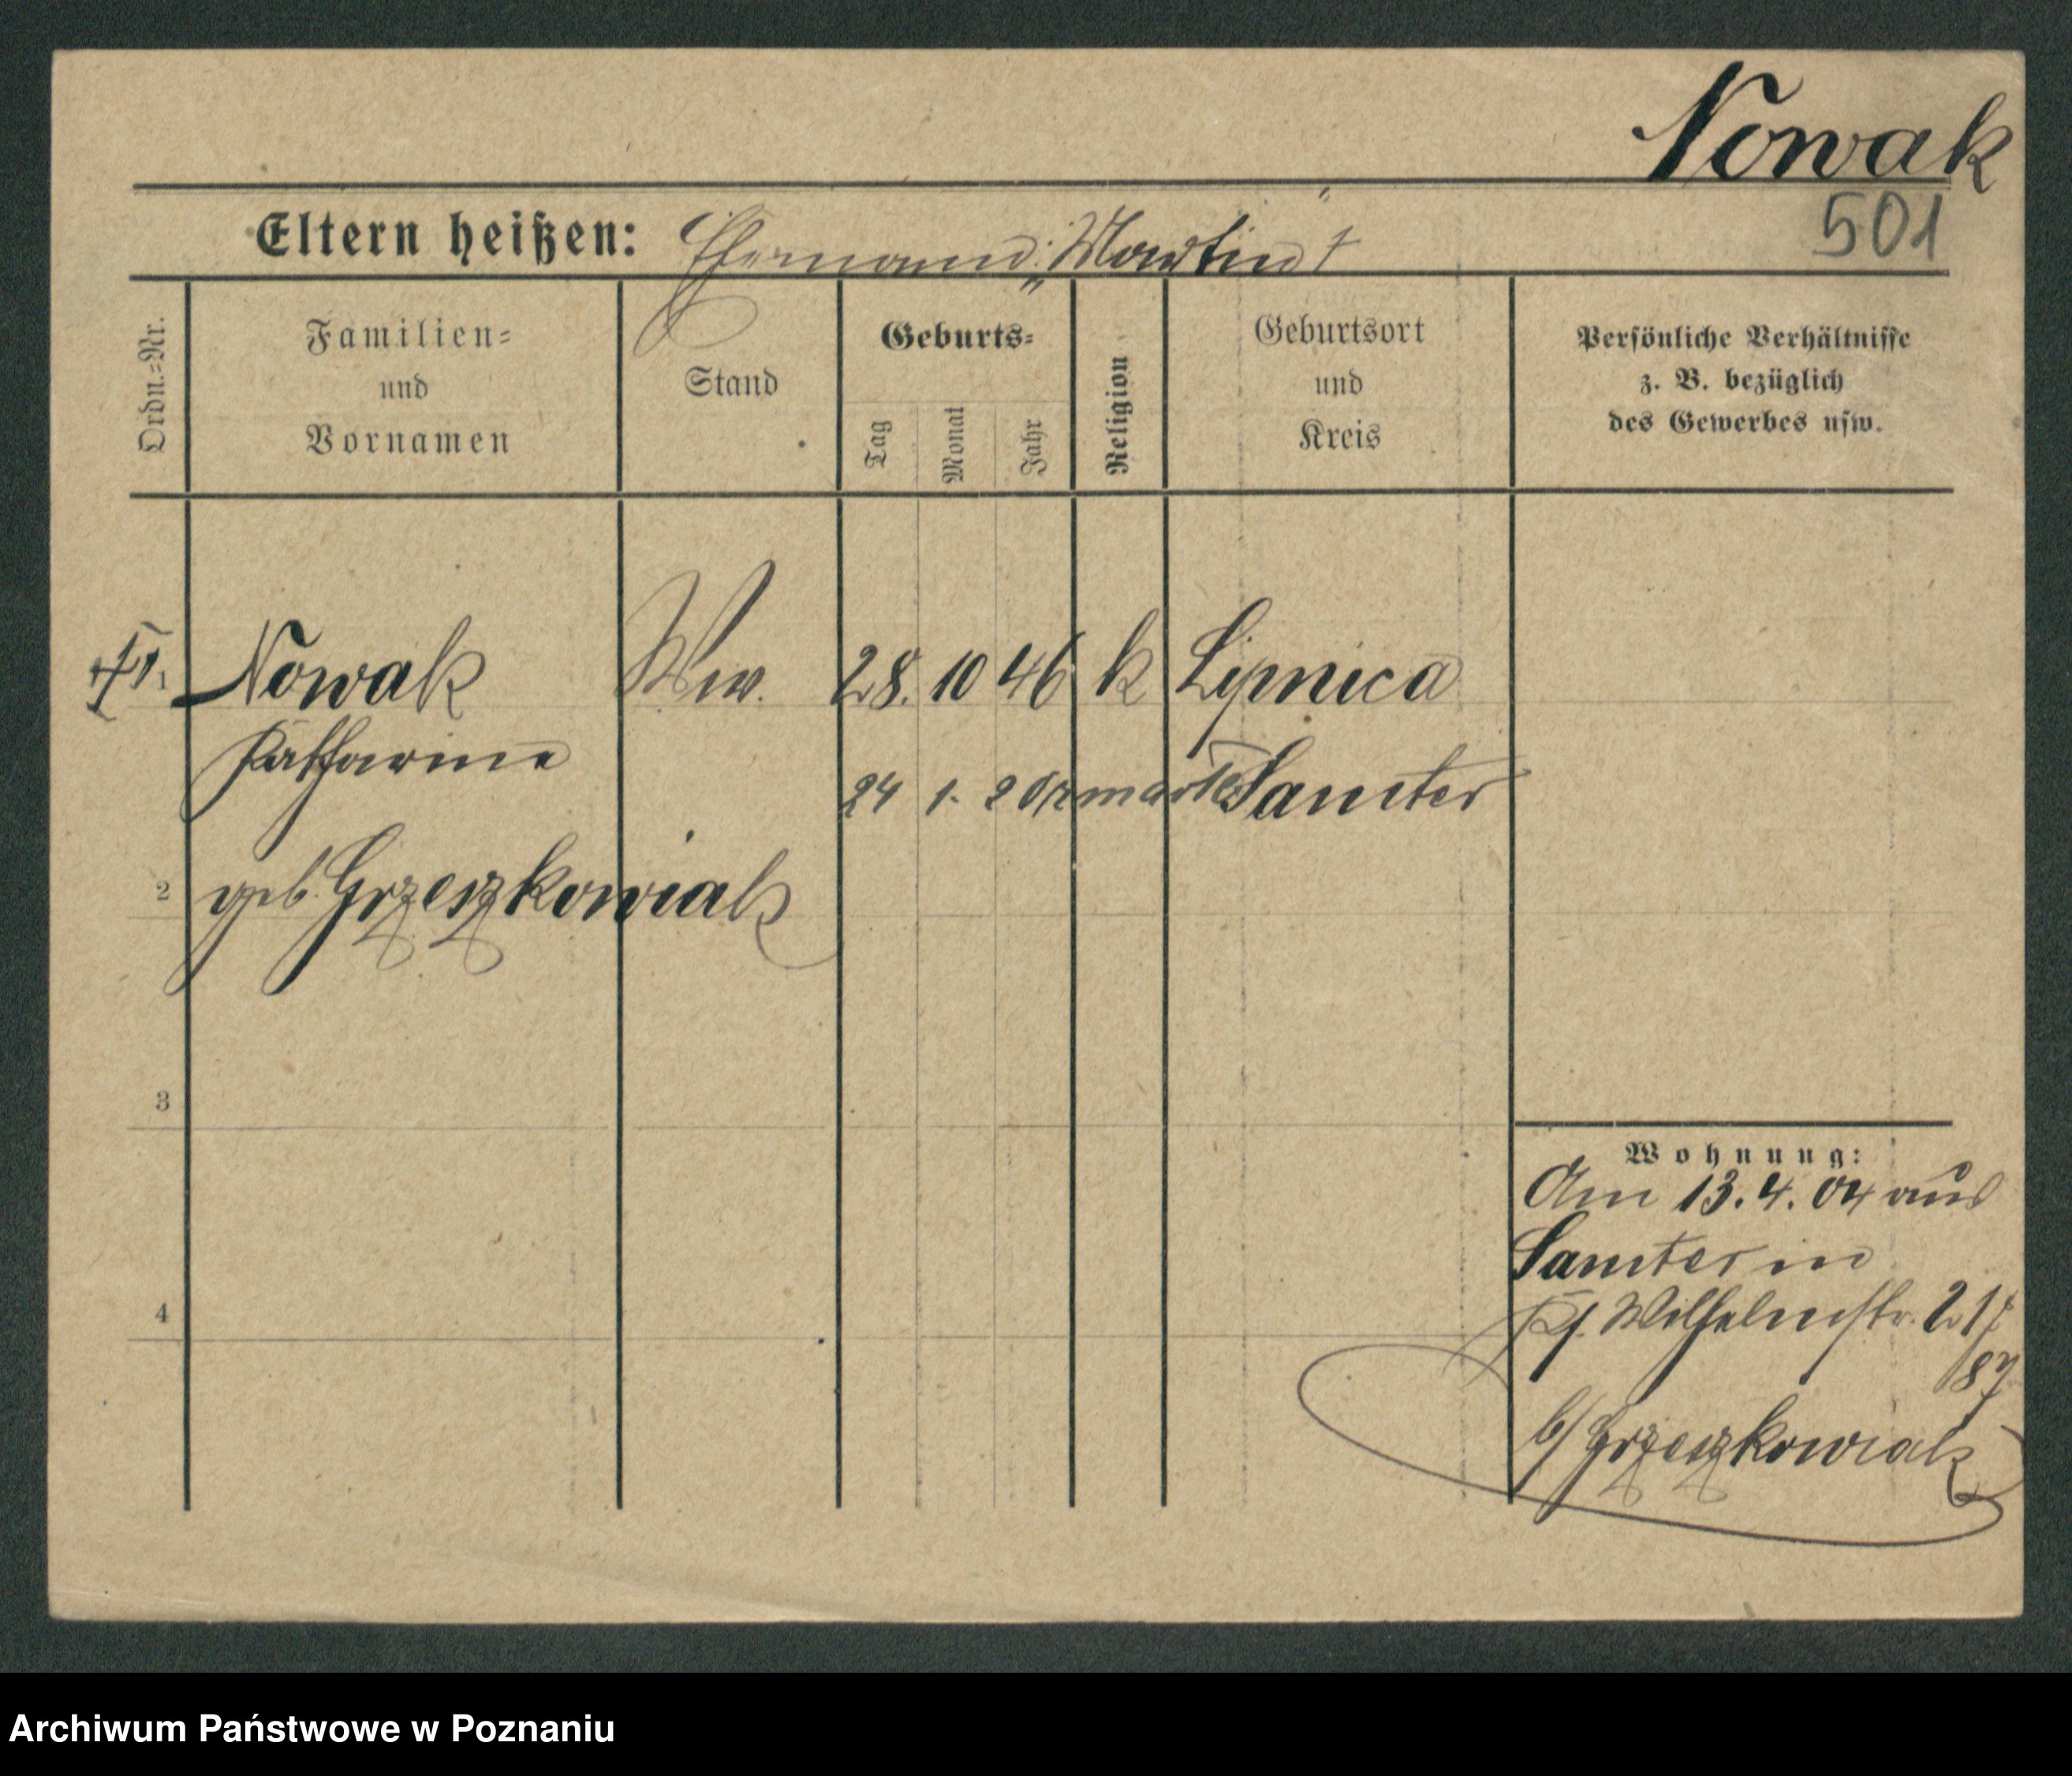 Nowak
501
Eltern heißen: Ehemann: "Martin" †
Ordn.=Nr.
Familien=
und
Vornamen
Stand
Geburts=
Tag
Monat
Jahr
Religion
Geburtsort
und
Kreis
Persönliche Verhältnisse
z. B. bezüglich
des Gewerbes usw.
† 1. Nowak Ww. 28. 10 46 k Lipnica
Katharine
24 1. Samter
2 geb. Grzeszkowiak
3
4
Wohnung:
Am 13.4.04 aus
Samter in
Wilhelmstr. 21
87
b/ Grzeszkowiak
Archiwum Państwowe w Poznaniu